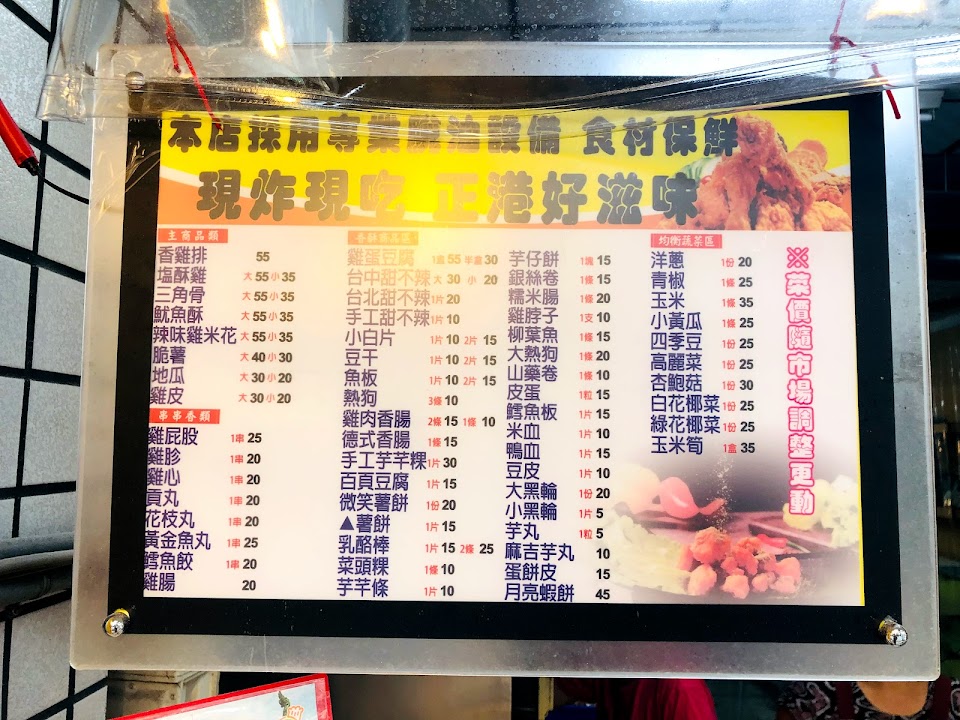 本店採用專業酸油設備 食材保鮮
現炸現吃 正港好滋味
主商品類
香雞排 55
塩酥雞 大55小35
三角骨 大55小35
魷魚酥 大55小35
辣味雞米花 大55小35
脆薯 大40小30
地瓜 大30小20
雞皮 大30小20
串串香類
雞屁股 1串25
雞胗 1串20
雞心 1串20
貢丸 1串20
花枝丸 1串20
黃金魚丸 1串25
鱈魚餃 1串20
雞腸 20
香酥商品區
雞蛋豆腐 1盒55半盒30
台中甜不辣 大30 小20
台北甜不辣 1片20
手工甜不辣 1片10
小白片 1片10 2片15
豆干 1片10 2片15
魚板 1片10 2片15
熱狗 3條10
雞肉香腸 2條15 1條10
德式香腸 1條15
手工芋芊粿 1片30
百頁豆腐 1片15
微笑薯餅 1份20
▲薯餅 1片15
乳酪棒 1片15 2條25
菜頭粿 1條10
芋芊條 1片10
芋仔餅 1塊15
銀絲卷 1條15
糯米腸 1條20
雞脖子 1支10
柳葉魚 1條15
大熱狗 1條20
山藥卷 1條10
皮蛋 1粒15
鱈魚板 1片15
米血 1片10
鴨血 1片15
豆皮 1片10
大黑輪 1份20
小黑輪 1片5
芋丸 1粒5
麻吉芋丸 10
蛋餅皮 15
月亮蝦餅 45
均衡蔬菜區
洋蔥 1份20
青椒 1條25
玉米 1條35
小黃瓜 1條25
四季豆 1份25
高麗菜 1份25
杏鮑菇 1份30
白花椰菜 1份25
綠花椰菜 1份25
玉米筍 1盒35
※菜價隨市場調整更動